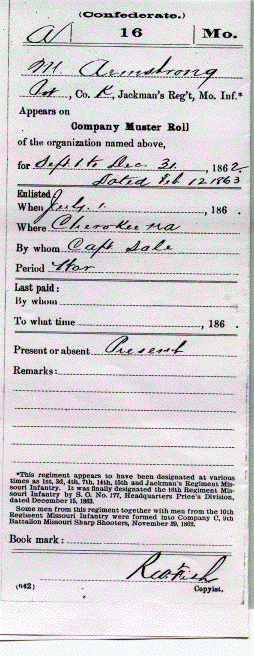 (Confederate.)
A 16 Mo.
M. Armstrong
Pvt, Co. K, Jackman's Reg't, Mo. Inf.*
Appears on
Company Muster Roll
of the organization named above,
for Sept 1 to Dec. 31, 1862.
Dated Feb 12 1863
Enlisted
When July 1, 186 .
Where Cherokee na
By whom Capt Dale
Period War
Last paid:
By whom
To what time , 186 .
Present or absent Present
Remarks:
*This regiment appears to have been designated at various
times as 1st, 3d, 4th, 7th, 14th, 15th and Jackman's Regiment Mis-
souri Infantry. It was finally designated the 16th Regiment Mis-
souri Infantry by S. O. No. 177, Headquarters Price's Division,
dated December 15, 1863.
Some men from this regiment together with men from the 10th
Regiment Missouri Infantry were formed into Company C, 9th
Battalion Missouri Sharp Shooters, November 29, 1862.
Book mark:
Fish
(642) Copyist.